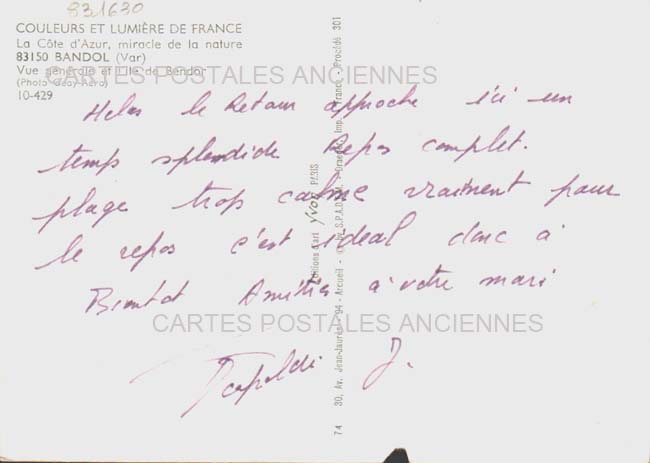 831630
COULEURS ET LUMIÈRE DE FRANCE
La Côte d'Azur, miracle de la nature
83150 BANDOL (Var)
Vue générale et l'Ile de Bendor
(Photo
10-429
CARTES POSTALES ANCIENNES
Helas le Retour approche ici un
temps splendide Repos complet.
plage trop calme vraiment pour
le repos c'est ideal donc à
Bientot Amitiés à votre mari
CARTES POSTALES ANCIENNES
J.
Editions d'art YVON PARIS
74 30, Av. Jean-Jaurès - 94 - Arcueil - © by S.P.A.D.E.M. - Draeger, Imp. France - Procédé 301